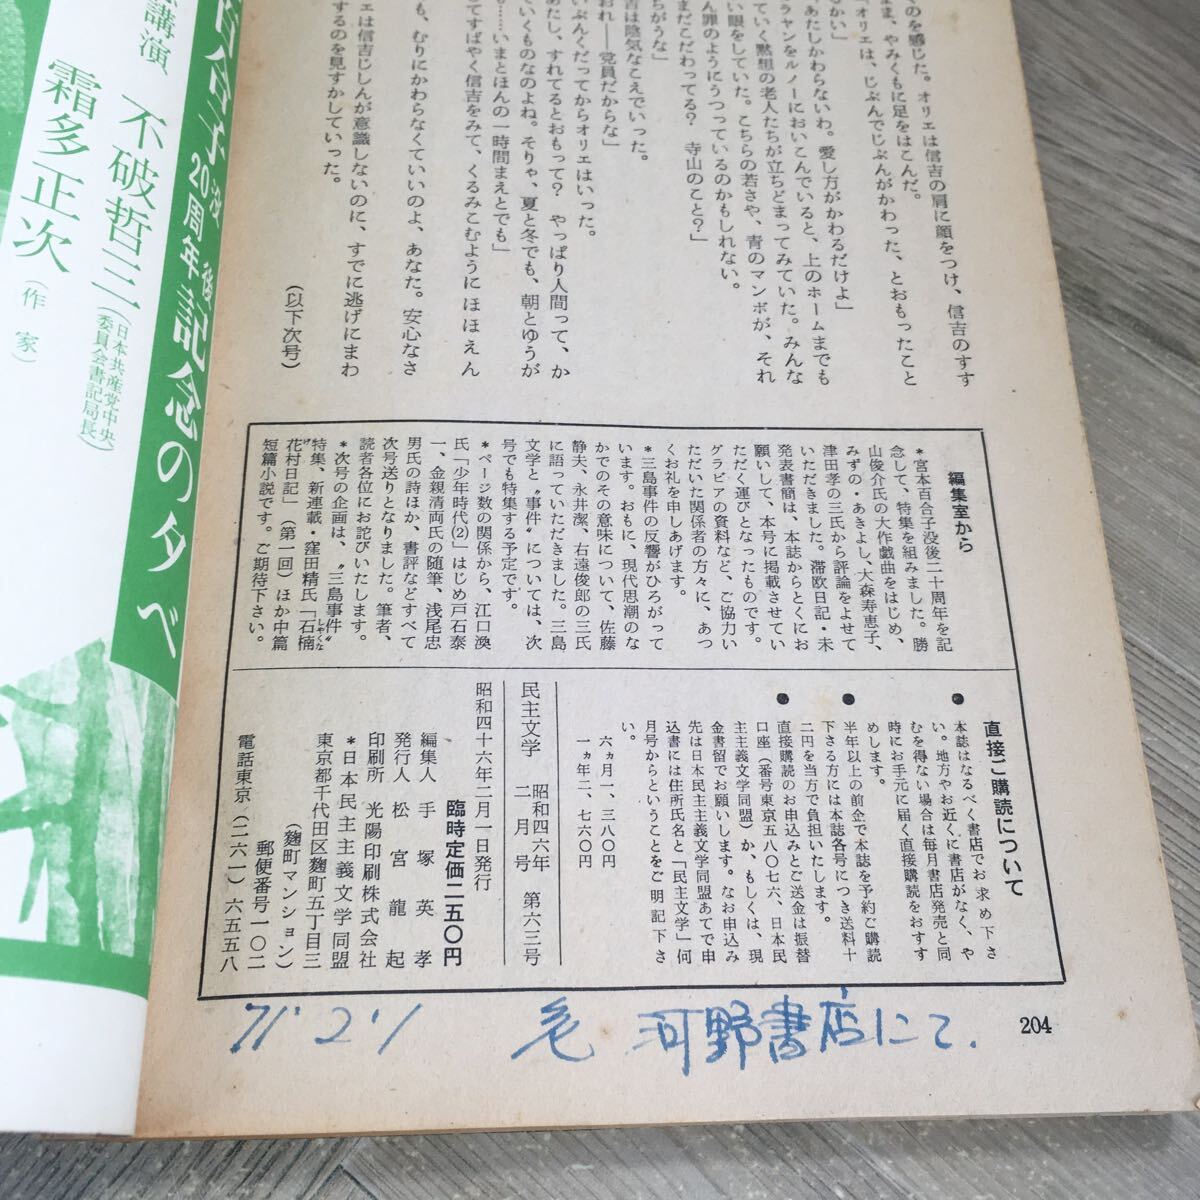 のを感じた。オリエは信吉の肩に顔をつけ、信吉のすす
まま、やみくもに足をはこんだ。
「オリエは、じぶんでじぶんがかわった、とおもったこと
るかい」
あたしかわらないわ。愛し方がかわるだけよ」
ラヤンをルノーにおいこんでいると、上のホームまでも
ていく黙想の老人たちが立ちどまってみていた。みんな
い眼をしていた。こちらの若さや、青のマンボが、それ
ん罪のようにうつっているのかもしれない。
まだこだわってる？　寺山のこと？」
ちがうな」
吉は陰気なこえでいった。
おれ――党員だからな」
いぶんくだってからオリエはいった。
あたし、すれてるとおもって？　やっぱり人間って、か
ていくものなのよね。そりゃ、夏と冬でも、朝とゆうが
も……いまとほんの一時間まえとでも」
てすばやく信吉をみて、くるみこむようにほほえん
も、むりにかわらなくていいのよ、あなた。安心なさ
エは信吉じしんが意識しないのに、すでに逃げにまわ
するのを見すかしていった。
（以下次号）
編集室から
＊宮本百合子没後二十周年を記
念して、特集を組みました。勝
山俊介氏の大作戯曲をはじめ、
みずの・あきよし、大森寿恵子、
津田孝の三氏から評論をよせて
いただきました。滞欧日記・未
発表書簡は、本誌からとくにお
願いして、本号に掲載させてい
ただく運びとなったものです。
グラビアの資料など、ご協力い
ただいた関係者の方々に、あつ
くお礼を申しあげます。
＊三島事件の反響がひろがって
います。おもに、現代思潮のな
かでのその意味について、佐藤
静夫、永井潔、右遠俊郎の三氏
に語っていただきました。三島
文学と〝事件〟については、次
号でも特集する予定です。
＊ページ数の関係から、江口渙
氏「少年時代(2)」はじめ戸石泰
一、金親清両氏の随筆、浅尾忠
男氏の詩ほか、書評などすべて
次号送りとなりました。筆者、
読者各位にお詫びいたします。
＊次号の企画は、〝三島事件〟
特集、新連載・窪田精氏「石楠
花村日記」（第一回）ほか中篇
短篇小説です。ご期待下さい。
直接ご購読について
● 本誌はなるべく書店でお求め下さ
い。地方やお近くに書店がなく、や
むを得ない場合は毎月書店発売と同
時にお手元に届く直接購読をおすす
めします。
● 半年以上の前金で本誌を予約ご購読
下さる方には本誌各号につき送料十
二円を当方で負担いたします。
● 直接購読のお申込みとご送金は振替
口座（番号東京五八〇七六、日本民
主主義文学同盟）か、もしくは、現
金書留でお願いします。なおお申込み
先は日本民主主義文学同盟あてで申
込書には住所氏名と「民主文学」何
月号からということをご明記下さ
い。
六ヵ月一、三八〇円
一ヵ年二、七六〇円
民主文学　昭和四六年　第六三号
二月号
昭和四十六年二月一日発行
臨時定価二五〇円
編集人　手塚英孝
発行人　松宮龍起
印刷所　光陽印刷株式会社
＊日本民主主義文学同盟
東京都千代田区麴町五丁目三
（麴町マンション）
郵便番号一〇二
電話東京（二六一）六五五八
204
71.2.1　　河野書店にて.
百合子没後20周年記念の夕べ
講演
不破哲三（日本共産党中央委員会書記局長）
霜多正次（作家）